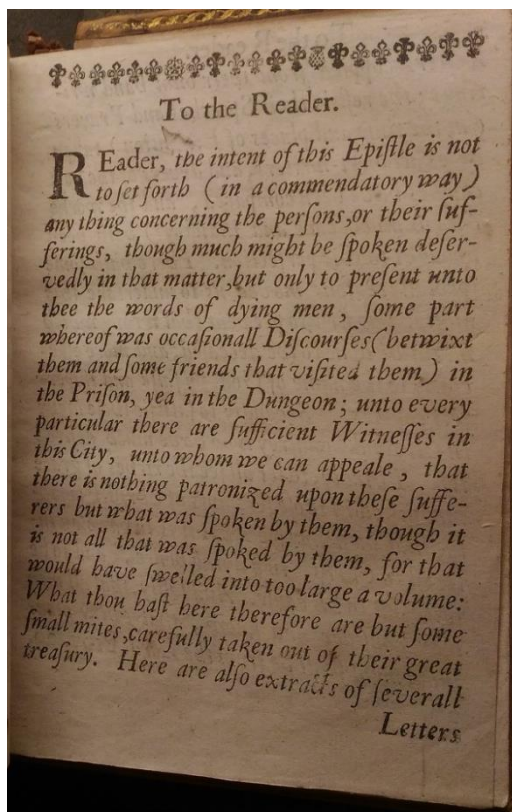 To the Reader.
REader, the intent of this Epiſtle is not
to ſet forth (in a commendatory way)
any thing concerning the perſons,or their ſuf-
ferings, though much might be ſpoken deſer-
vedly in that matter,but only to preſent unto
thee the words of dying men, ſome part
whereof was occaſionall Diſcourſes(betwixt
them and ſome friends that viſited them) in
the Priſon, yea in the Dungeon; unto every
particular there are ſufficient Witneſſes in
this City, unto whom we can appeale, that
there is nothing patronized upon theſe ſuffe-
rers but what was ſpoken by them, though it
is not all that was ſpoked by them, for that
would have ſwelled into too large a volume:
What thou haſt here therefore are but ſome
ſmall mites,carefully taken out of their great
treaſury. Here are alſo extracts of ſeverall
Letters